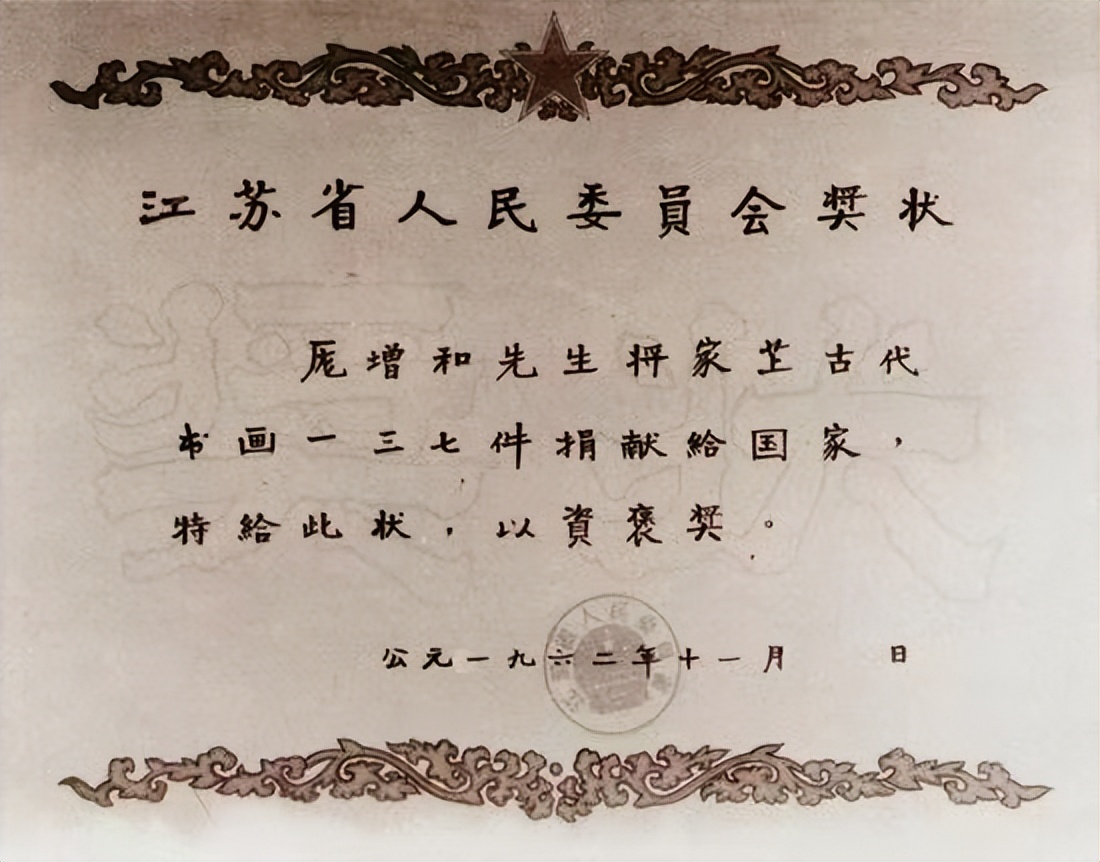 江苏省人民委員会奬状
厐增和先生将家芷古代
书画一三七件捐献給国家，
特給此状，以資褒奬。
公元一九六二年十一月 日